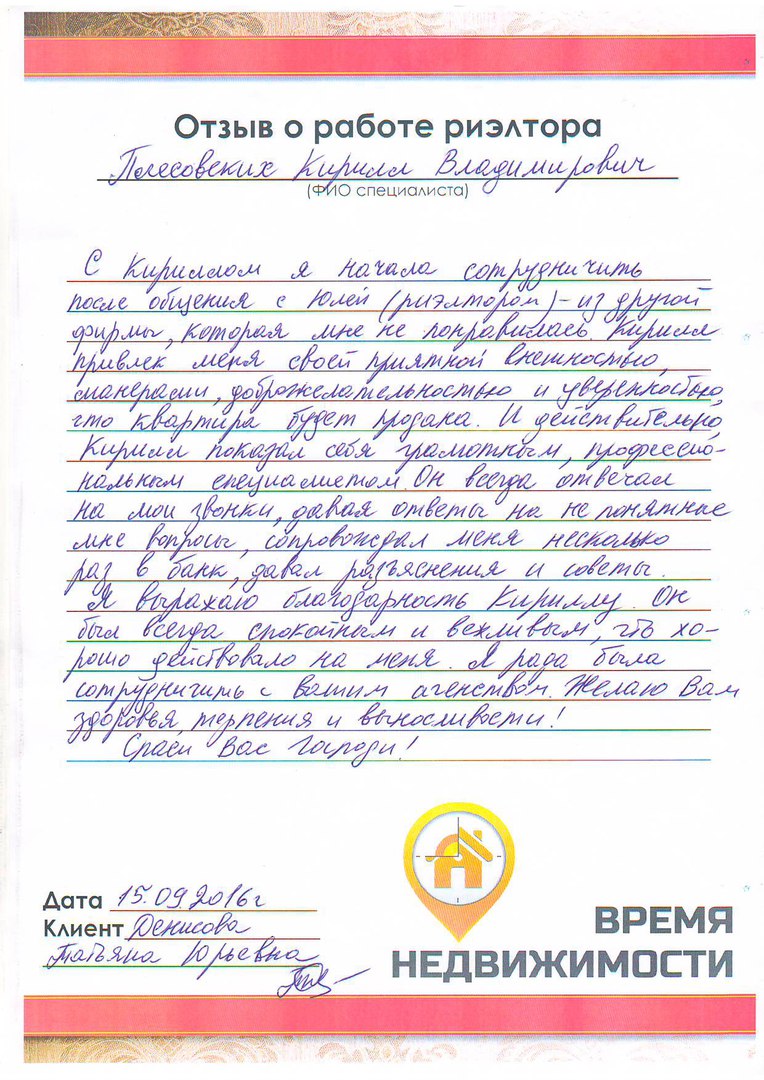 Отзыв о работе риэлтора
Полесовских Кирилл Владимирович
(ФИО специалиста)
С Кириллом я начала сотрудничить
после общения с Юлей (риэлтором) - из другой
фирмы, которая мне не понравилась. Кирилл
привлек меня своей приятной внешностью,
манерами, доброжелательностью и уверенностью,
что квартира будет продана. И действительно,
Кирилл показал себя грамотным, профессио-
нальным специалистом. Он всегда отвечал
на мои звонки, давая ответы на не понятные
мне вопросы, сопровождал меня несколько
раз в банк, давал разъяснения и советы.
Я выражаю благодарность Кириллу. Он
был всегда спокойным и вежливым, что хо-
рошо действовало на меня. Я рада была
сотрудничить с вашим агенством. Желаю Вам
здоровья, терпения и выносливости!
Спаси Вас Господи!
Дата 15.09.2016г
Клиент Денисова
Татьяна Юрьевна
ВРЕМЯ
НЕДВИЖИМОСТИ